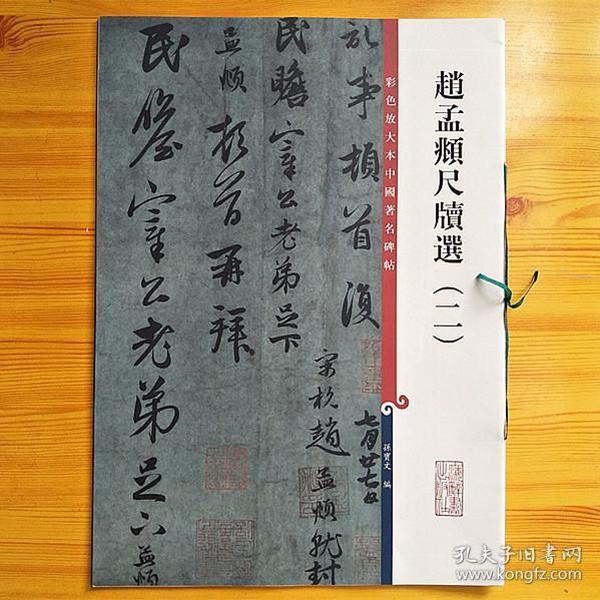 趙孟頫尺牘選（二）
彩色放大本中國著名碑帖
孫寶文 編
記事頓首復
民瞻宰公老弟足下
孟頫頓首再拜
民瞻宰公老弟足下孟頫
趙孟頫就封
孔夫子旧书网
www.kongfz.com